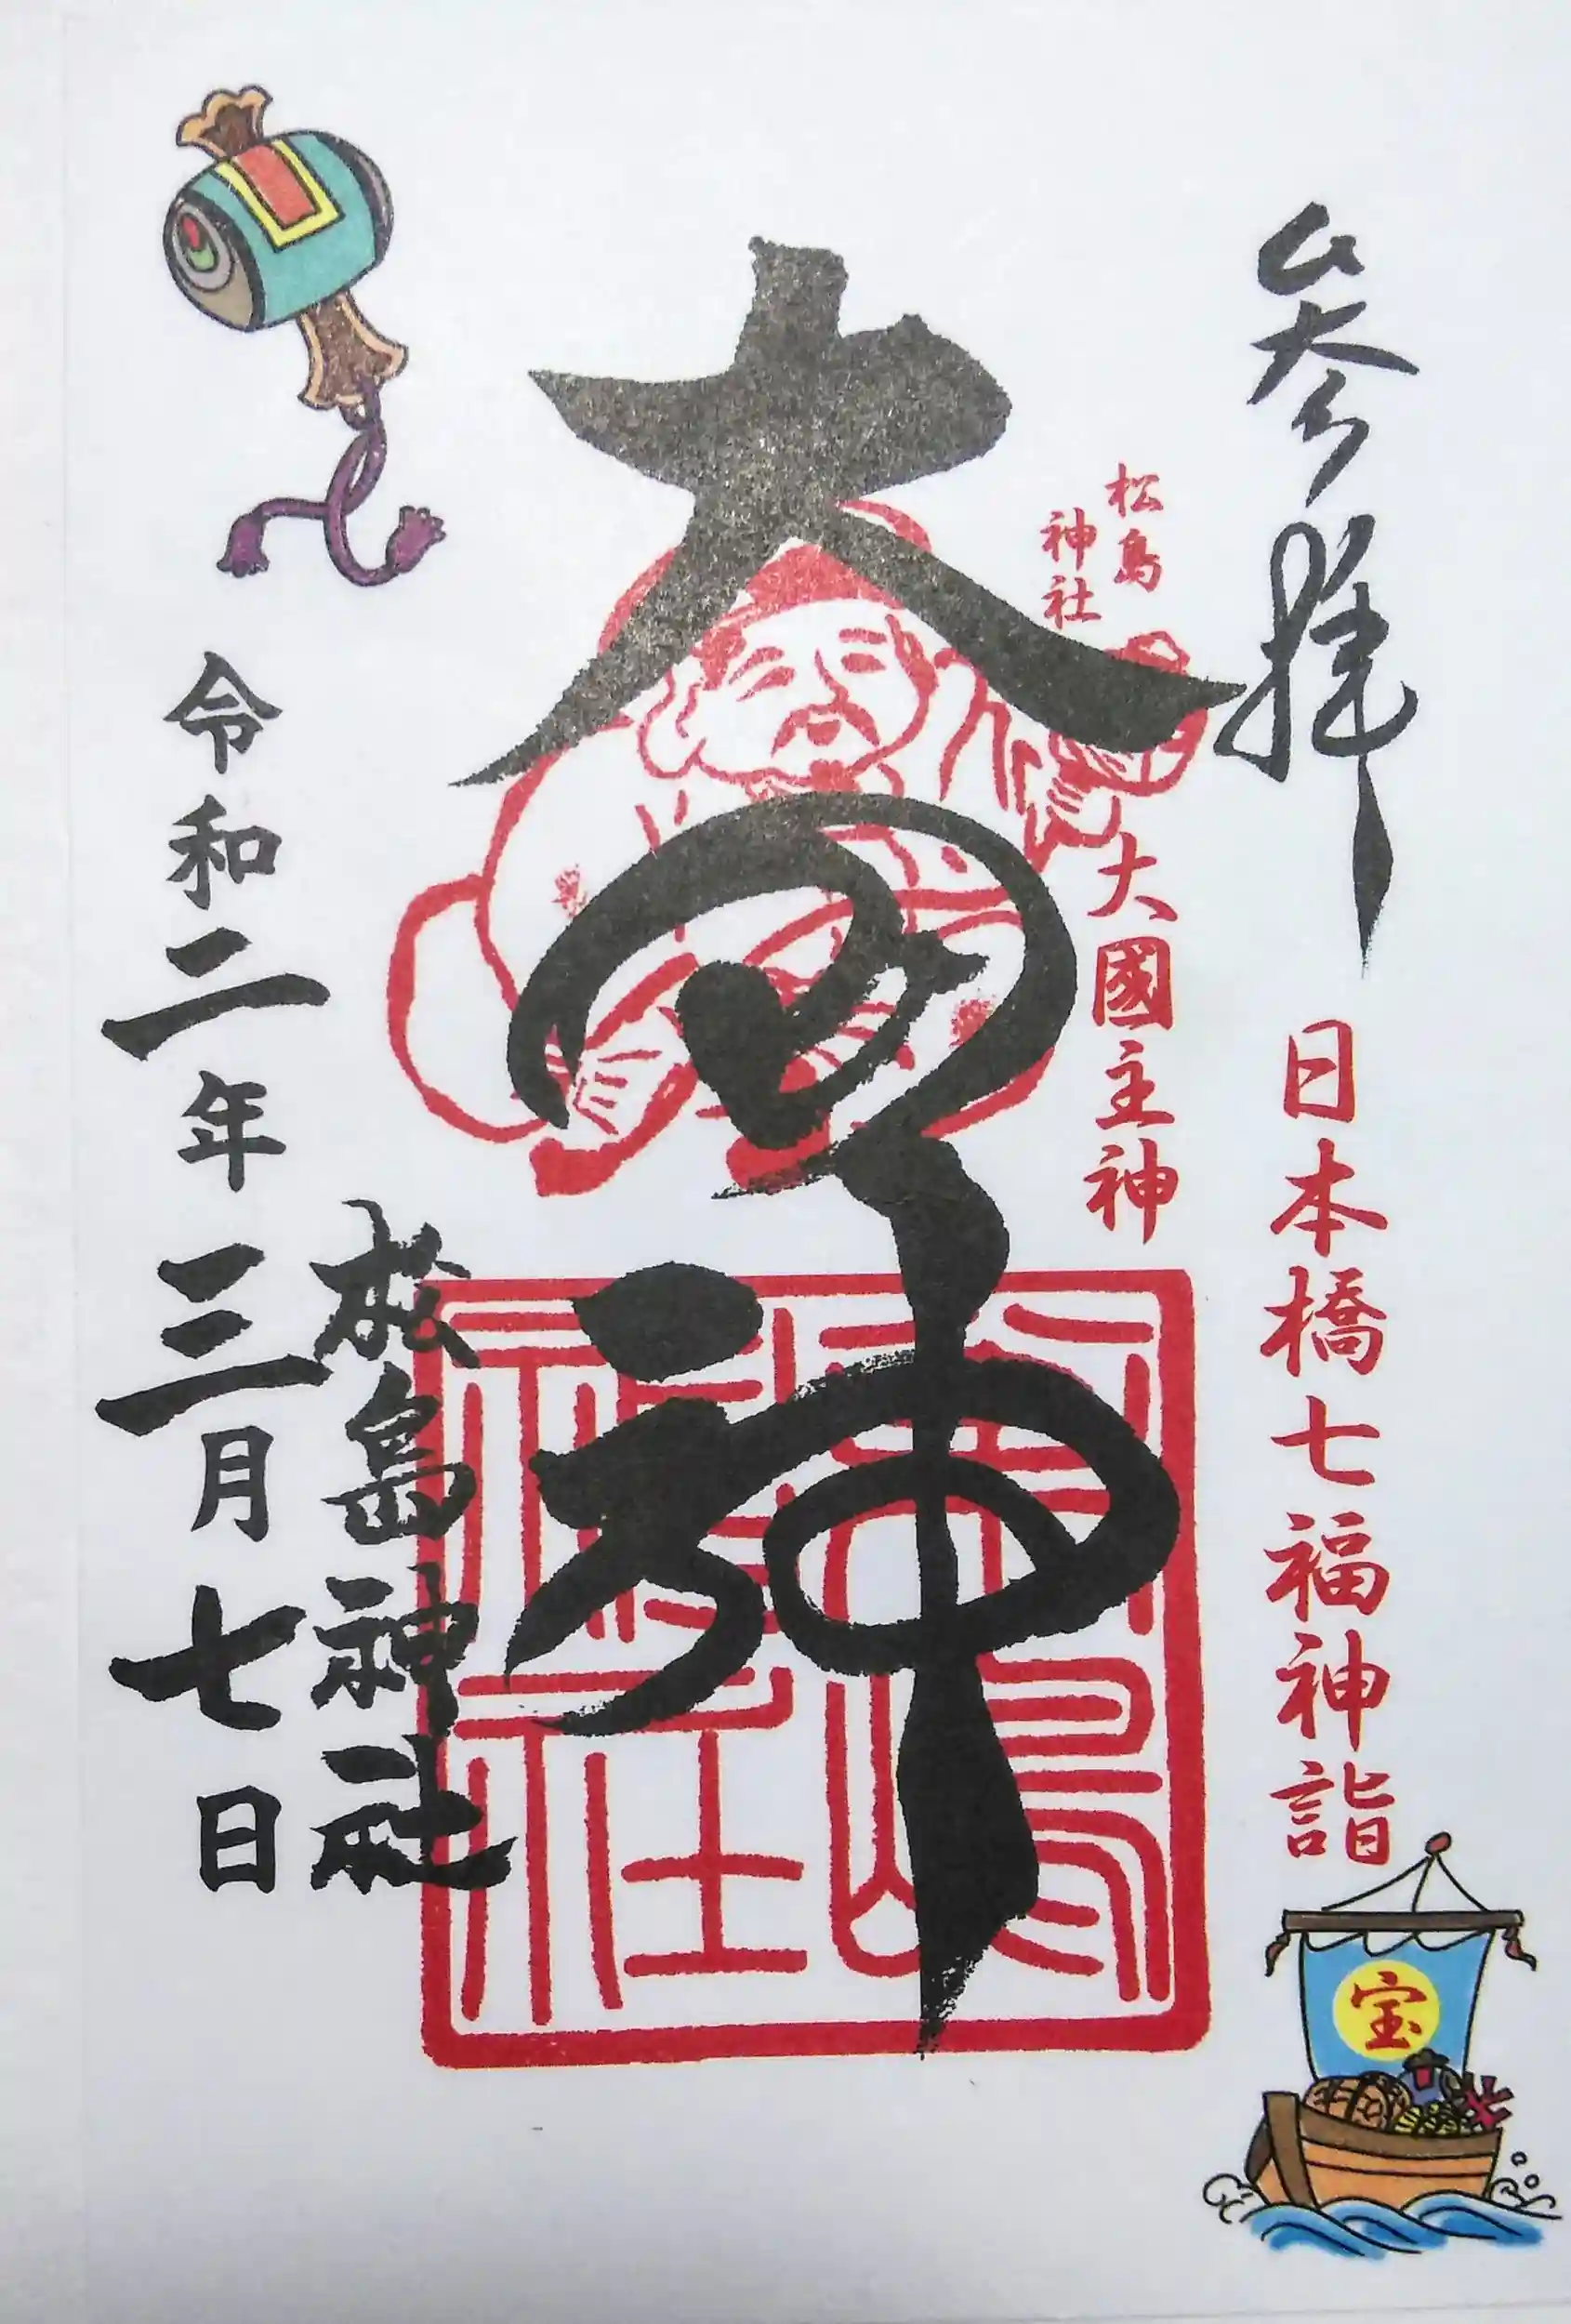 参拝
日本橋七福神詣
宝
松島
神社
大國主神
大国神
松島神社
令和二年三月七日